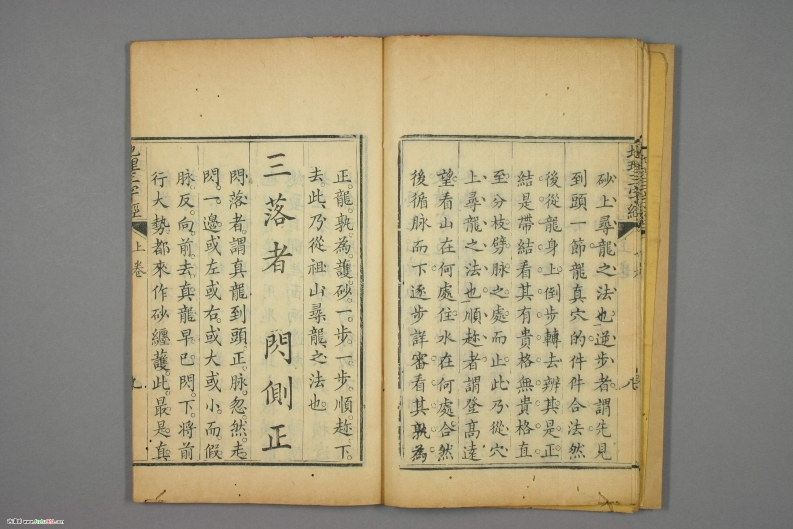 地理三字經
砂上尋龍之法也逆步者謂先見
到頭一節龍真穴的件件合法然
後從龍身上倒步轉去辨其是正
結是帶結看其有貴格無貴格直
至分枝劈脉之處而止此乃從穴
上尋龍之法也順趂者謂登高達
望看山在何處住水在何處合然
後循脉而下逐步詳審看其孰為
正龍孰為護砂一步一步順趂下
去此乃從祖山尋龍之法也
三落者 閃側正
閃落者謂真龍到頭正脉忽然走
閃一邊或左或右或大或小而假
脉反向前去真龍早已閃下將前
行大勢都來作砂纏護此最是真
地理三字經
上卷
九